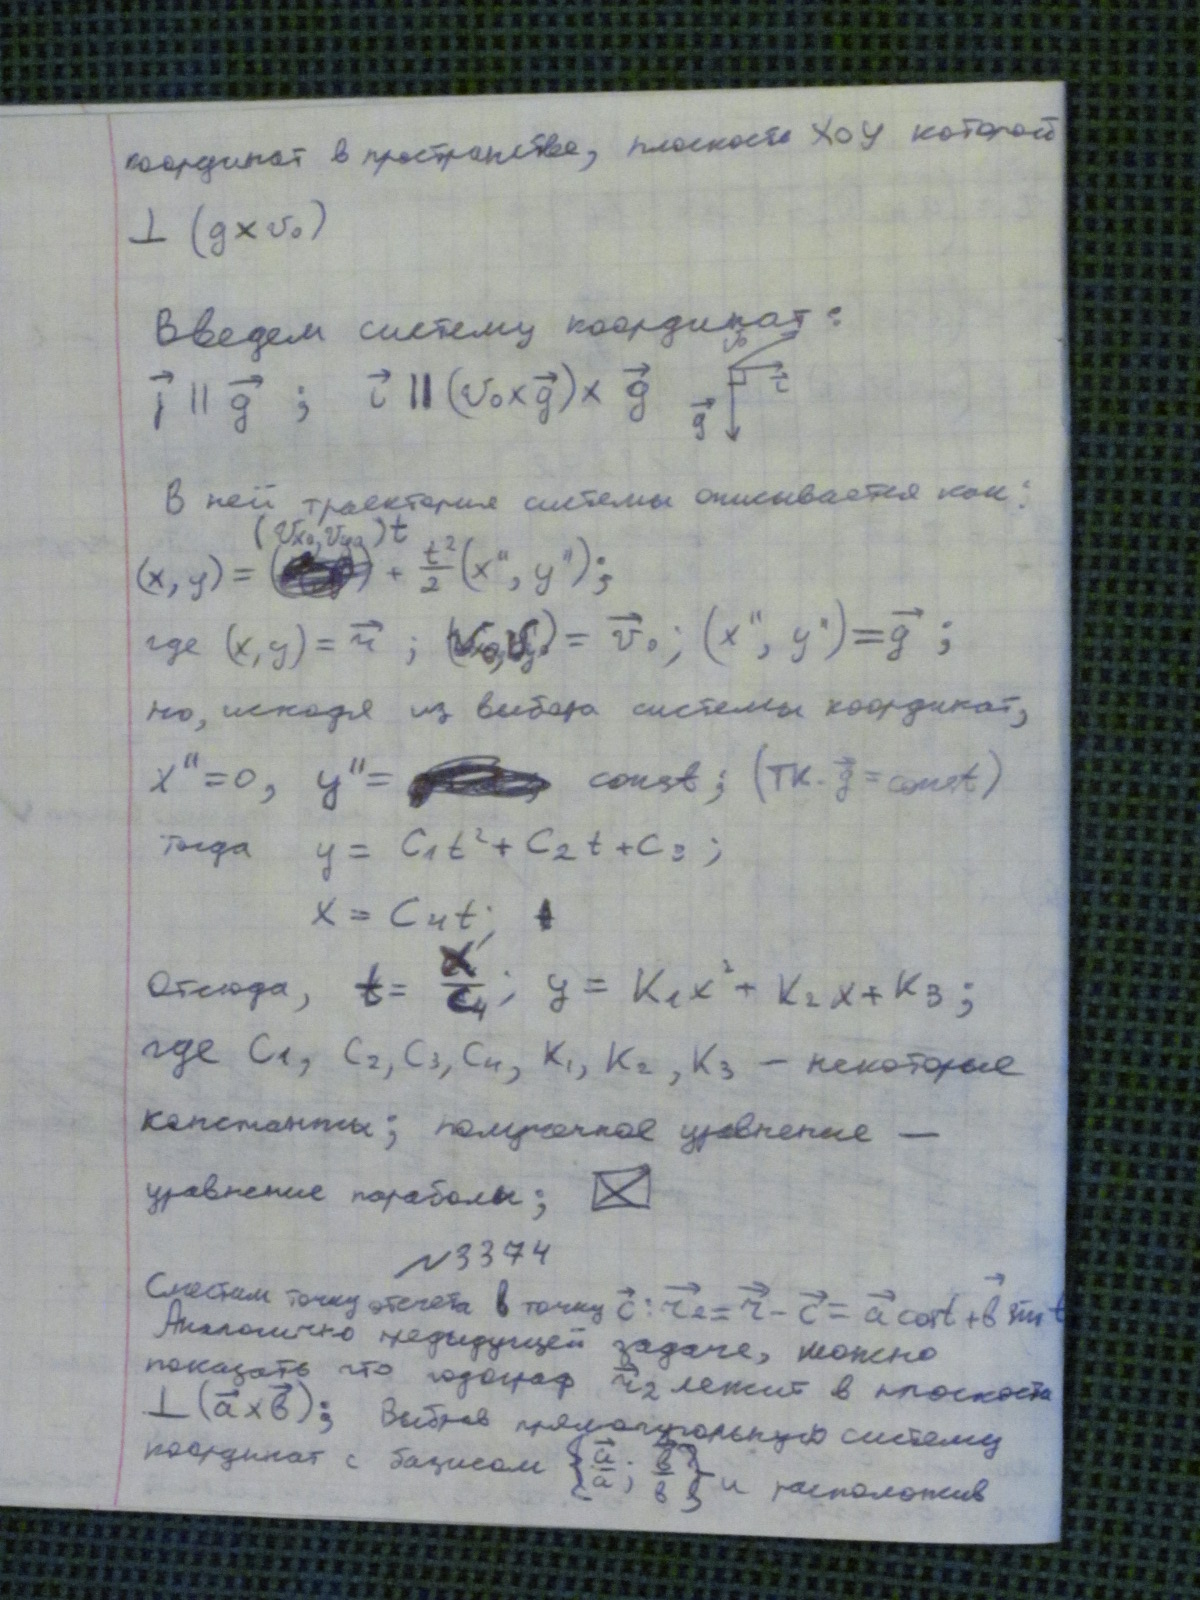 координат в пространстве, плоскость XOY которой
⊥ (g×v₀)
Введем систему координат:
v₀
j⃗ || g⃗ ; i⃗ || (v₀×g⃗)× g⃗
i⃗
g⃗
В ней траектория системы описывается как:
(vₓ₀, vᵧ₀)t
(x, y) = + t²/2 (x'', y'');
где (x, y) = r⃗ ; (vₓ₀, vᵧ₀) = v⃗₀; (x'', y'') = g⃗ ;
но, исходя из выбора системы координат,
x''=0, y''= const; (тк. g⃗ = const)
тогда y = C₁t² + C₂t + C₃ ;
x = C₄t;
Отсюда, t = x/C₄ ; y = K₁x² + K₂x + K₃ ;
где C₁, C₂, C₃, C₄, K₁, K₂, K₃ — некоторые
константы; полученное уравнение —
уравнение параболы;
№3374
Сместим точку отсчета в точку c⃗ : r⃗₂ = r⃗ - c⃗ = a⃗ cost + b⃗ sint
Аналогично предыдущей задаче, можно
показать что годограф r⃗₂ лежит в плоскости
⊥ (a⃗×b⃗); Выбрав прямоугольную систему
координат с базисом {a⃗/a ; b⃗/b} и расположив